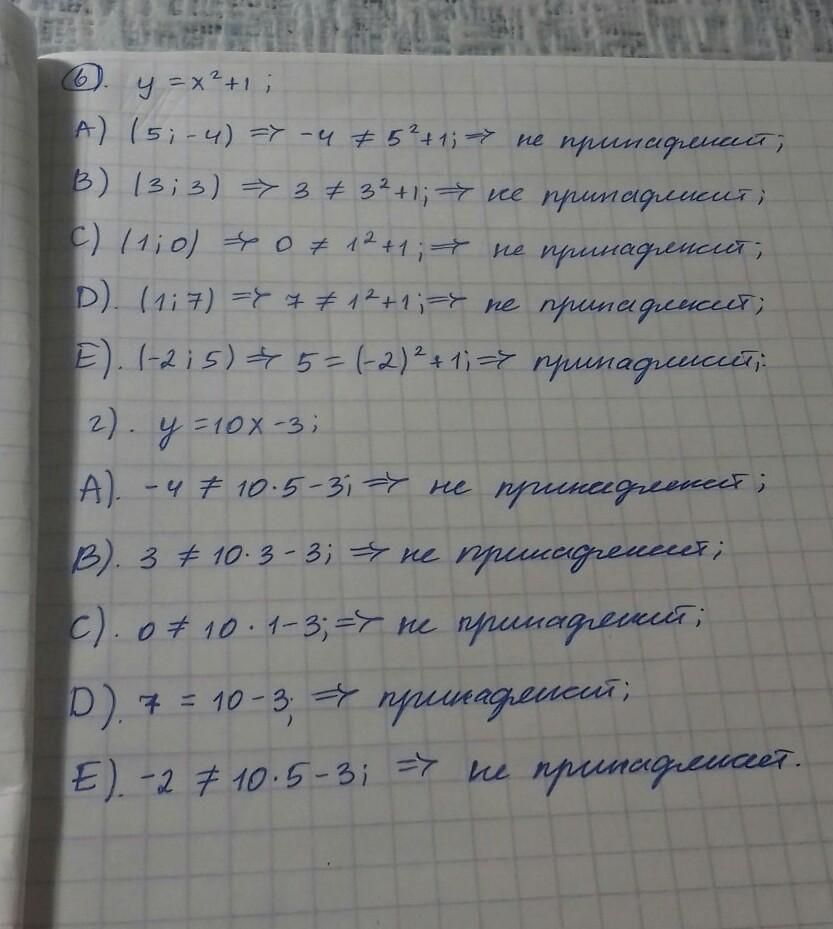 6). y = x² + 1 ;
A) (5; -4) => -4 ≠ 5² + 1; => не принадлежит;
B) (3; 3) => 3 ≠ 3² + 1; => не принадлежит;
C) (1; 0) => 0 ≠ 1² + 1; => не принадлежит;
D). (1; 7) => 7 ≠ 1² + 1; => не принадлежит;
E). (-2; 5) => 5 = (-2)² + 1; => принадлежит;
г). y = 10x - 3;
A). -4 ≠ 10·5 - 3; => не принадлежит;
B). 3 ≠ 10·3 - 3; => не принадлежит;
C). 0 ≠ 10·1 - 3; => не принадлежит;
D). 7 = 10 - 3; => принадлежит;
E). -2 ≠ 10·5 - 3; => не принадлежит.